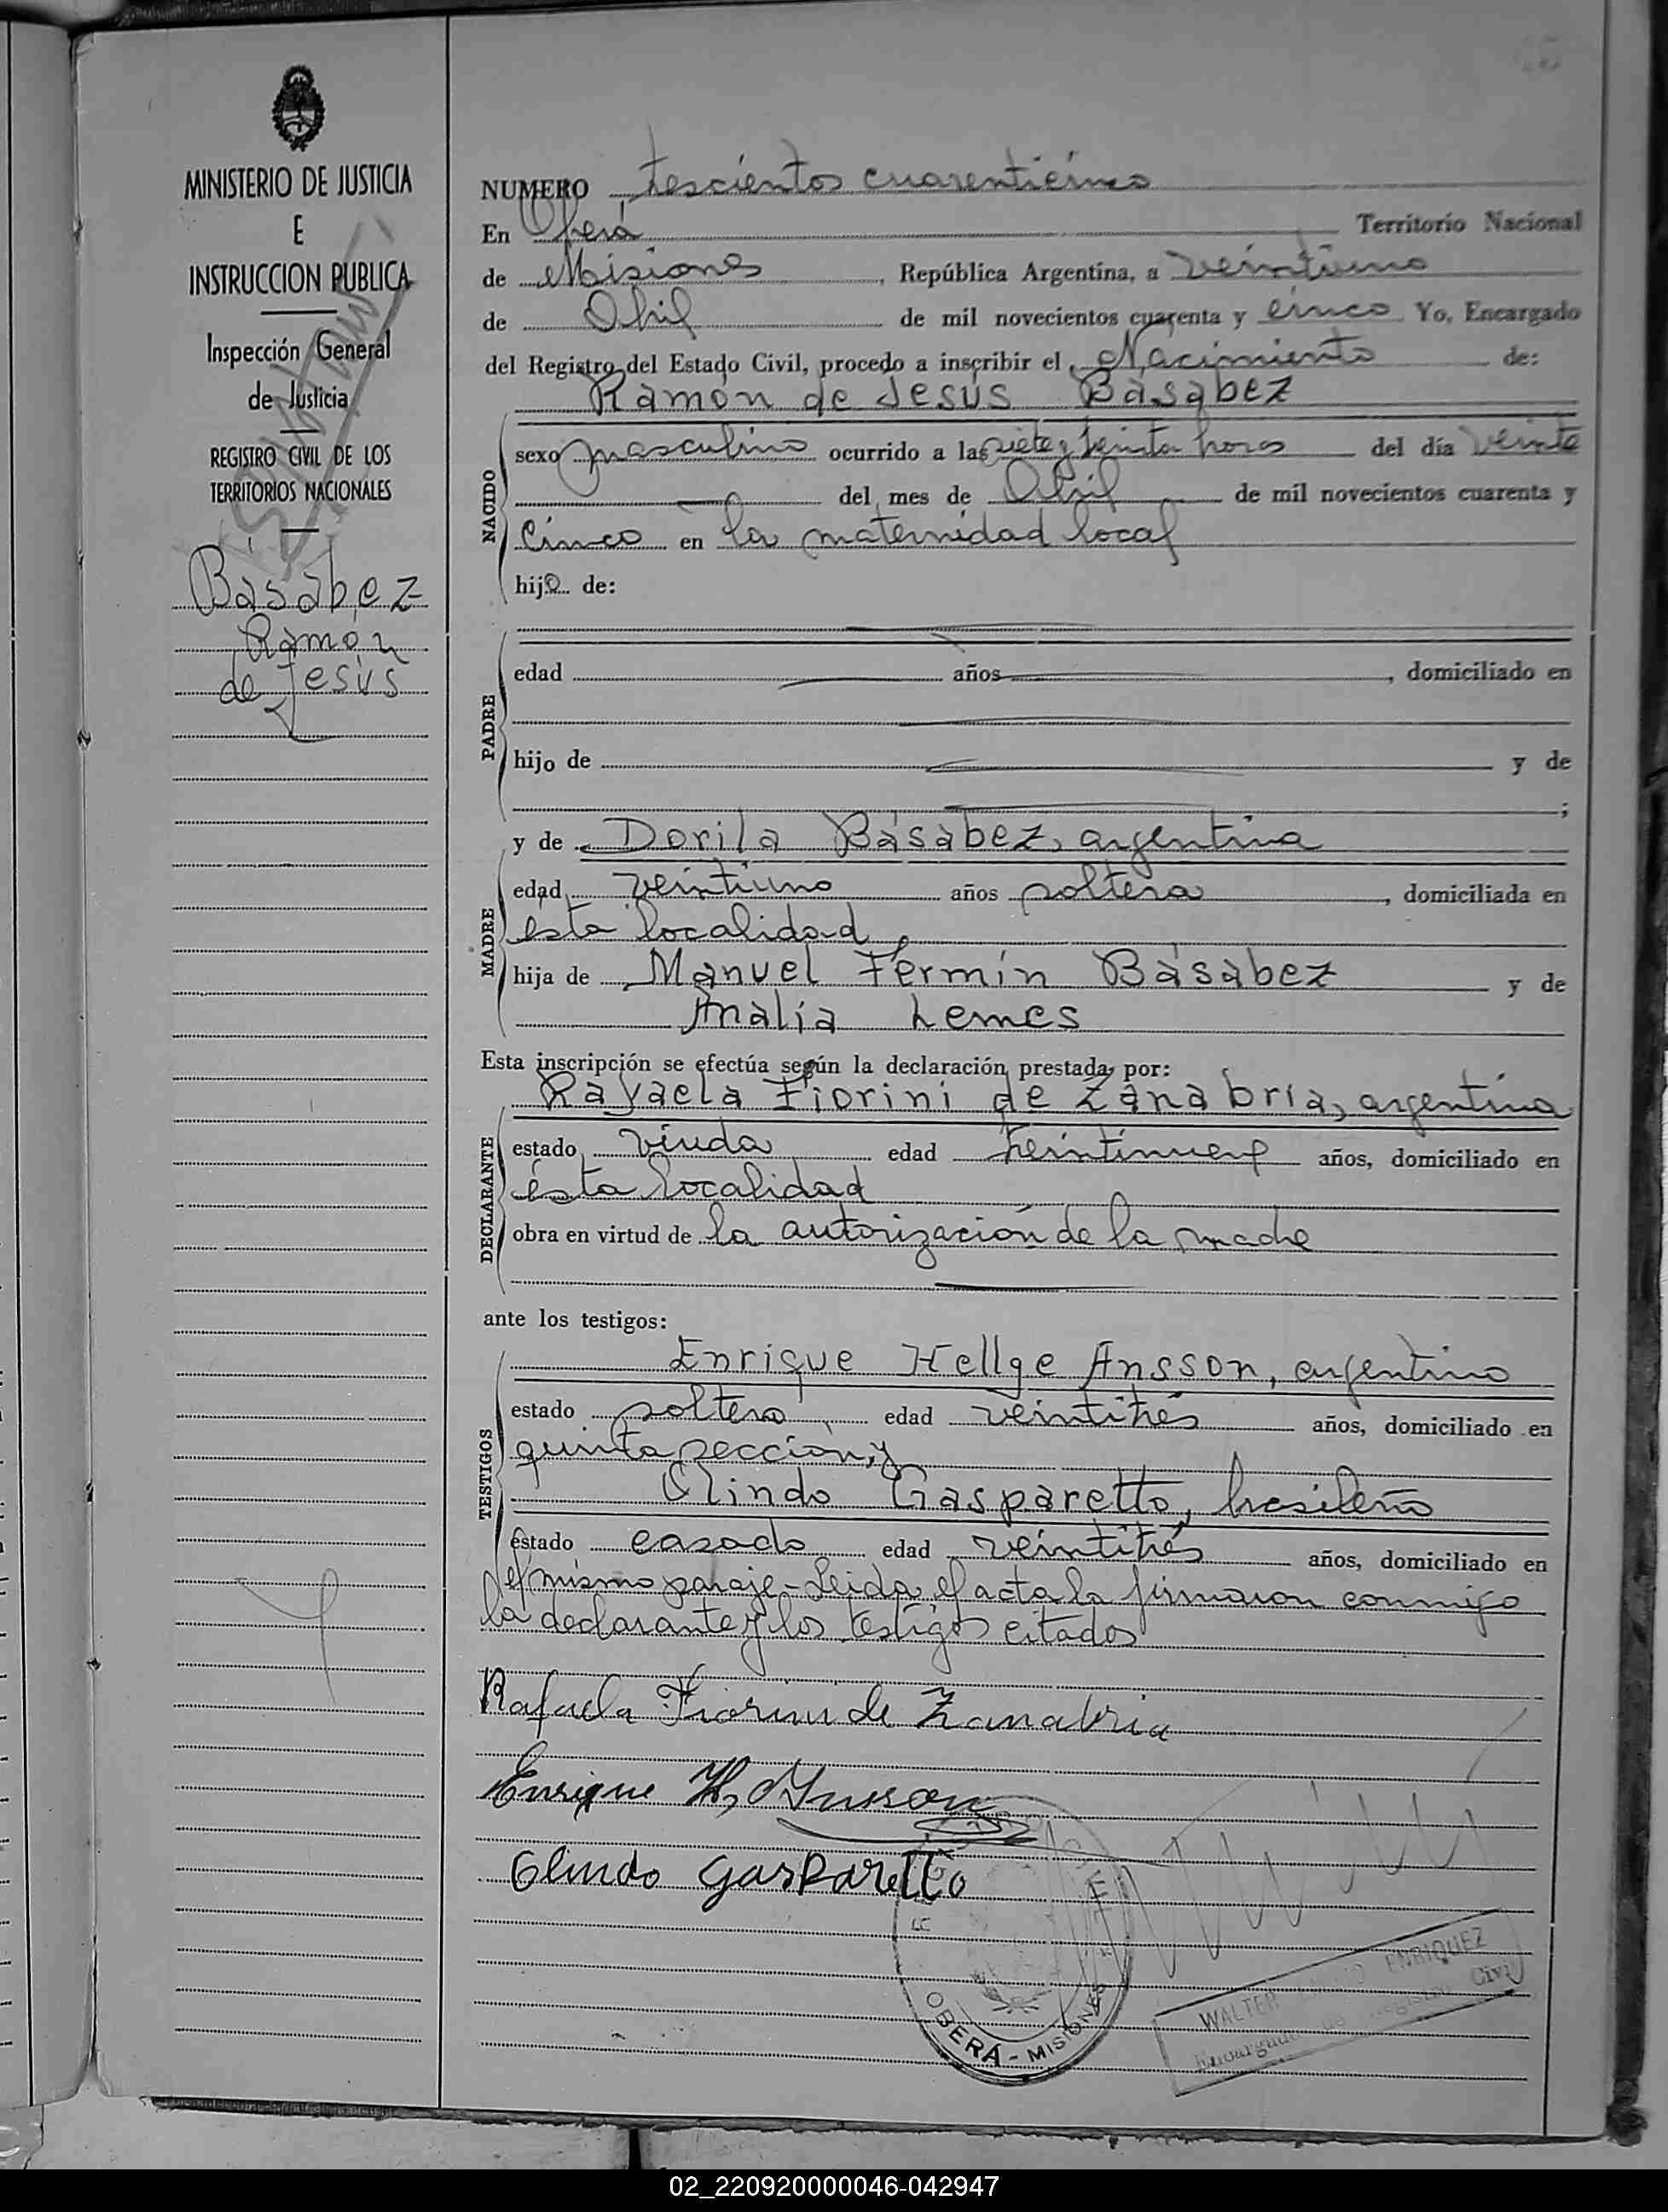 MINISTERIO DE JUSTICIA
E
INSTRUCCION PUBLICA
Inspección General
de Justicia
REGISTRO CIVIL DE LOS
TERRITORIOS NACIONALES
Básàbez
Ramón
de Jesús
NUMERO trescientos cuarenticinco
En Oberá Territorio Nacional
de Misiones, República Argentina, a veintiuno
de Abril de mil novecientos cuarenta y cinco Yo, Encargado
del Registro del Estado Civil, procedo a inscribir el Nacimiento de:
Ramón de Jesús Básabez
NACIDO
sexo masculino ocurrido a las siete y treinta horas del día veinte
del mes de Abril de mil novecientos cuarenta y
cinco en la maternidad local
hijo de:
PADRE
edad años, domiciliado en
hijo de y de
;
MADRE
y de Dorila Básabez, argentina
edad veintiuno años soltera, domiciliada en
esta localidad
hija de Manuel Fermín Básabez y de
Analía Lemes
Esta inscripción se efectúa según la declaración prestada por:
DECLARANTE
Rafaela Fiorini de Zanabria, argentina
estado viuda edad treintinueve años, domiciliado en
ésta localidad
obra en virtud de la autorización de la madre
ante los testigos:
TESTIGOS
Enrique Hellge Ansson, argentino
estado soltero edad veintitrés años, domiciliado en
quinta sección, y
Olindo Gasparetto, brasileño
estado casado edad veintitrés años, domiciliado en
el mismo paraje - Leida el acta la firmaron conmigo
la declarante y los testigos citados
Rafaela Fiorini de Zanabria
Enrique H. Ansson
Olindo Gasparetto
OBERÁ - MISIONES
WALTER ENRIQUEZ
Encargado del Registro Civil
02_220920000046-042947